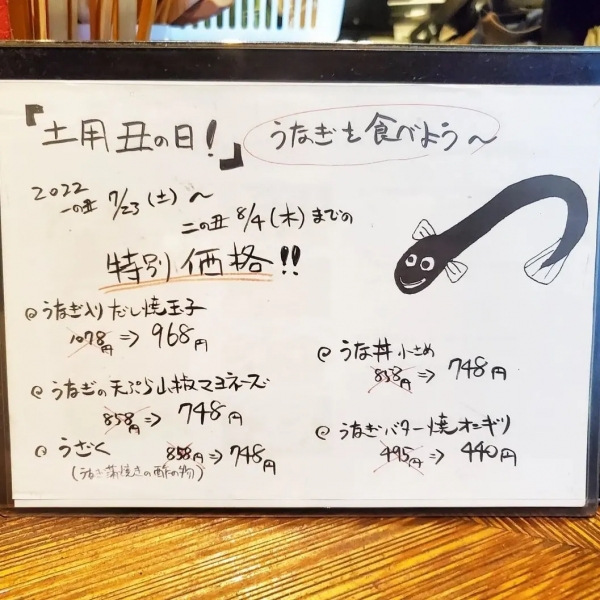 『土用丑の日！』
うなぎを食べよう～
2022
一の丑 7/23(土)～
二の丑 8/4(木)までの
特別価格!!
@うなぎ入りだし焼玉子
1078円⇒968円
@うなぎの天ぷら山椒マヨネーズ
858円⇒748円
@うざく 858円⇒748円
(うなぎ蒲焼きの酢の物)
@うな丼 小さめ
858円⇒748円
@うなぎバター焼オニギリ
495円⇒440円